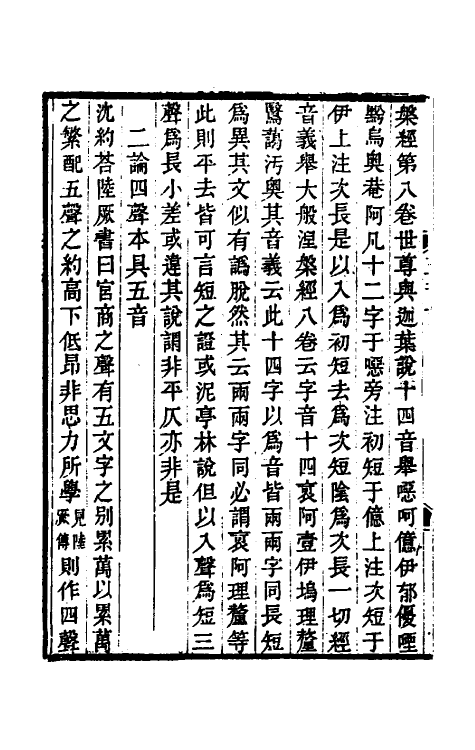 槃經第八卷世尊與迦葉說十四音舉噁呵億伊郁優哩
黟烏奧菴阿凡十二字于噁旁注初短于億上注次短于
伊上注次長是以入為初短去為次短陰為次長一切經
音義舉大般涅槃經八卷云字音十四裒阿壹伊塢理釐
黳藹汚奧其音義云此十四字以為音皆兩兩字同長短
為異其文似有譌脫然其云兩兩字同必謂裒阿理釐等
此則平去皆可言短之證或泥亭林說但以入聲為短三
聲為長小差或違其說謂非平仄亦非是
二論四聲本具五音
沈約荅陸厥書曰宮商之聲有五文字之別累萬以累萬
之繁配五聲之約高下低昂非思力所學見陸厥傳則作四聲